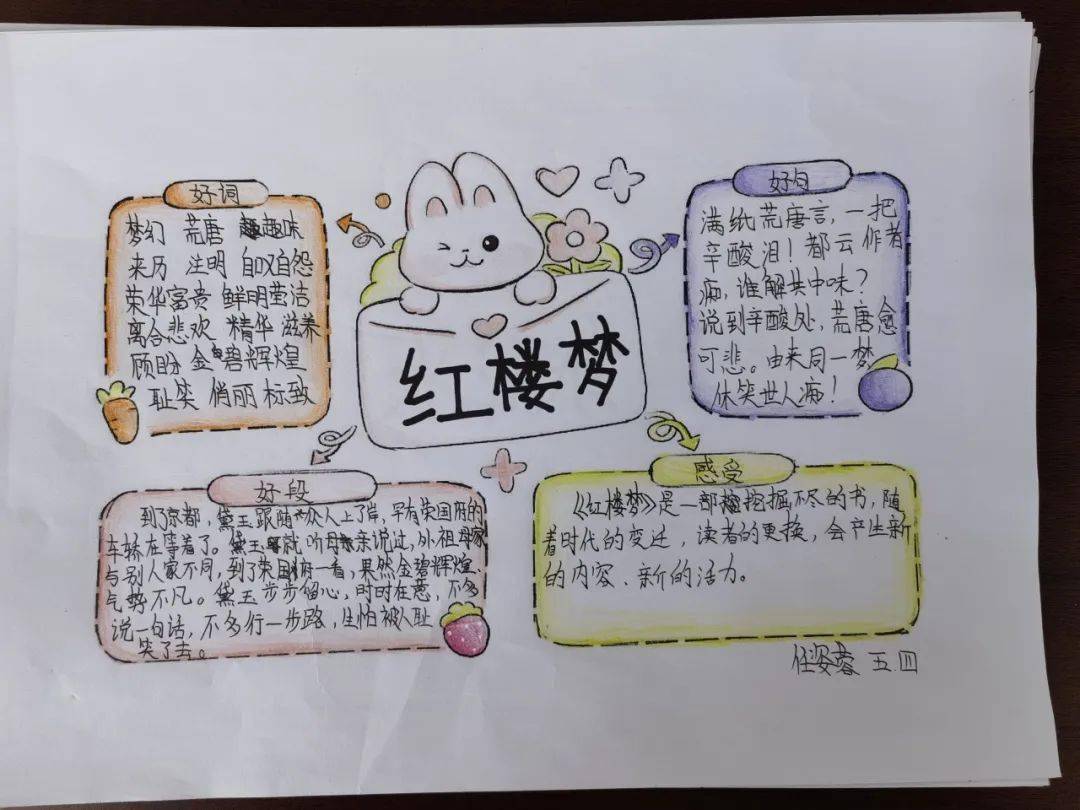 好词
梦幻 荒唐 趣味
来历 注明 自叹自怨
荣华富贵 鲜明莹洁
离合悲欢 精华 滋养
顾盼 金碧辉煌
耻笑 俏丽 标致
红楼梦
好句
满纸荒唐言,一把
辛酸泪!都云作者
痴,谁解其中味?
说到辛酸处,荒唐愈
可悲。由来同一梦
休笑世人痴!
好段
到了京都,黛玉跟随众人上了岸,早有荣国府的
车轿在等着了。黛玉就听母亲说过,外祖母家
与别人家不同,到了荣国府一看,果然金碧辉煌、
气势不凡。黛玉步步留心,时时在意,不多
说一句话,不多行一步路,生怕被人耻
笑了去。
感受
《红楼梦》是一部挖掘不尽的书,随
着时代的变迁,读者的更换,会产生新
的内容、新的活力。
任姿蓉 五.四